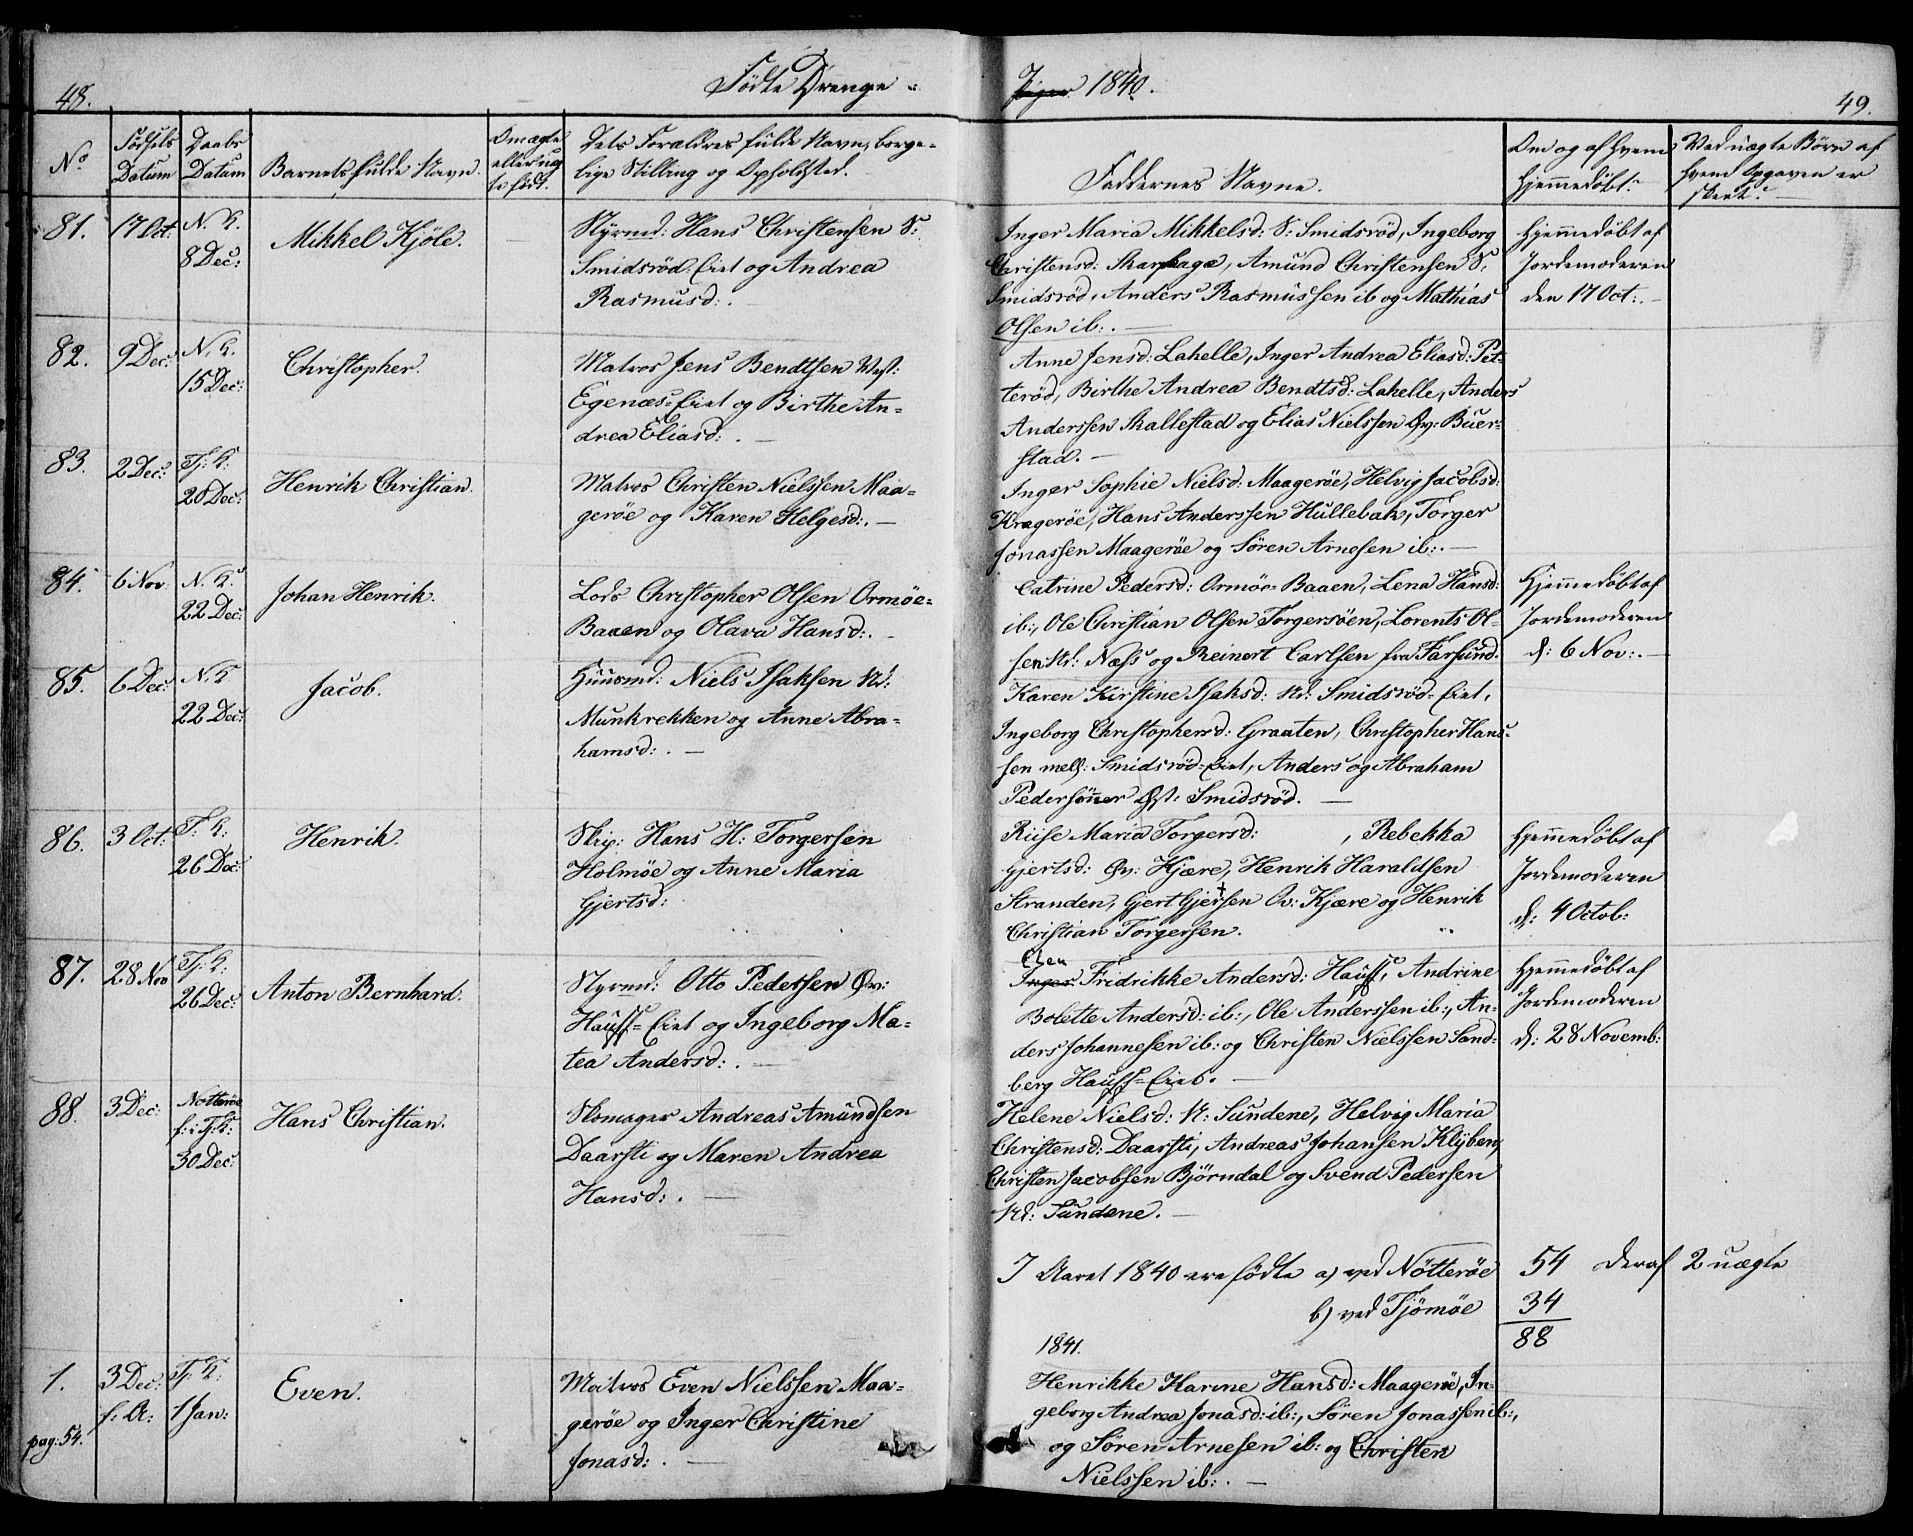 48.
Fødte Drenge
1840.
49.
No
Fødsels Datum
Daabs Datum
Barnets fulde Navn.
Om ægte eller uægte født.
Dets Forældres fulde Navn, borge-
lige Stilling og Opholdsted.
Faddernes Navne.
Om og af hvem
hjemmedøbt?
Ved uægte Børn af
hvem Opgaven er
skeet?
81.
17 Oct:
N. K.
8 Dec:
Mikkel Kjöle.
Styrmd: Hans Christensen S:
Smidsröd-Eiet og Andrea
Rasmusd:.
Inger Maria Mikkelsd: S: Smidsröd, Ingeborg
Christensd: Skarphage, Amund Christensen S:
Smidsröd, Anders Rasmussen ib og Mathias
Olsen ib:. —
Hjemmedøbt af
Jordemoderen
den 17 Oct:. —
82.
9 Dec:
N. K.
15 Dec:
Christopher.
Matros Jens Bendtsen Vest:
Egenæs-Eiet og Birthe An-
drea Eliasd:. —
Anne Jensd: Lahelle, Inger Andrea Eliasd: Pet-
teröd, Birthe Andrea Bendtsd: Lahelle, Anders
Anderssen Skallestad og Elias Nielssen Øv: Buer-
stad. —
83.
2 Dec:
Tj: K:
20 Dec:
Henrik Christian.
Matros Christen Nielssen Maa-
geröe og Karen Helgesd:. —
Inger Sophie Nielsd: Maageröe, Helvig Jacobsd:
Krageröe, Hans Anderssen Hullebak, Torger
Jonassen Maageröe og Sören Arnesen ib:. —
84.
6 Nov.
N. K.
22 Dec:
Johan Henrik.
Lods Christopher Olsen Ormöe-
Baaen og Olava Hansd:. —
Catrine Pedersd: Ormöe-Baaen, Lena Hansd:
ib:, Ole Christian Olsen Torgersöen, Lorents Ol-
sen Nd: Næss og Reinert Carlsen fra Farsund.
Hjemmedøbt af
Jordemoderen
d: 6 Nov:. —
85.
6 Dec:
N. K
22 Dec:
Jacob.
Huusmd: Niels Isaksen Nd:
Munkrekken og Anne Abra-
hamsd:. —
Karen Kirstine Isaksd: Nd: Smidsröd-Eiet,
Ingeborg Christophersd: Graaten, Christopher Hans-
sen mell: Smidsröd-Eiet, Anders og Abraham
Pedersönner Øst: Smidsröd. —
86.
3 Oct:
T: K:
26 Dec:
Henrik.
Skip: Hans H: Torgersen
Holmöe og Anne Maria
Gjertsd:
Riise Maria Torgersd: , Rebekka
Gjertsd: Øv: Kjære, Henrik Haraldsen
Stranden, Gjert Gjertsen Øv: Kjære og Henrik
Christian Torgersen.
Hjemmedøbt af
Jordemoderen
d: 4 Octob:
87.
28 Nov
Tj: K:
26 Dec:
Anton Bernhard.
Styrmd: Otto Pedersen Øv:
Hauff-Eiet og Ingeborg Ma-
tea Andersd:. —
Elen
Inger Fridrikke Andersd: Hauff, Andrine
Bolette Andersd: ib:, Ole Anderssen ib:, An-
ders Johannesen ib: og Christen Nielssen Sand-
berg Hauff-Eiet. —
Hjemmedøbt af
Jordemoderen
d: 28 Novemb:
88.
3 Dec:
Nøtteröe
f: i Tj: K:
30 Dec:
Hans Christian.
Skomager Andreas Amundsen
Daarsti og Maren Andrea
Hansd:. —
Helene Nielsd: N: Sundene, Helvig Maria
Christensd: Daarsti, Andreas Johansen Klyben,
Christen Jacobsen Björndal og Svend Pederssen
Nd: Sundene. —
I Aaret 1840 ere fødte a) ved Nötteröe 54 deraf 2 uægte
b) ved Tjömöe 34
88
1841.
1.
pag: 54.
3 Dec:
f: A:
Tj: K:
1 Jan:
Even.
Matros Even Nielssen Maa-
geröe og Inger Christine
Jonasd:. —
Henrikke Karine Hansd: Maageröe, In-
geborg Andrea Jonasd: ib:, Sören Jonassen ib:,
og Sören Arnesen ib: og Christen
Nielssen ib:. —